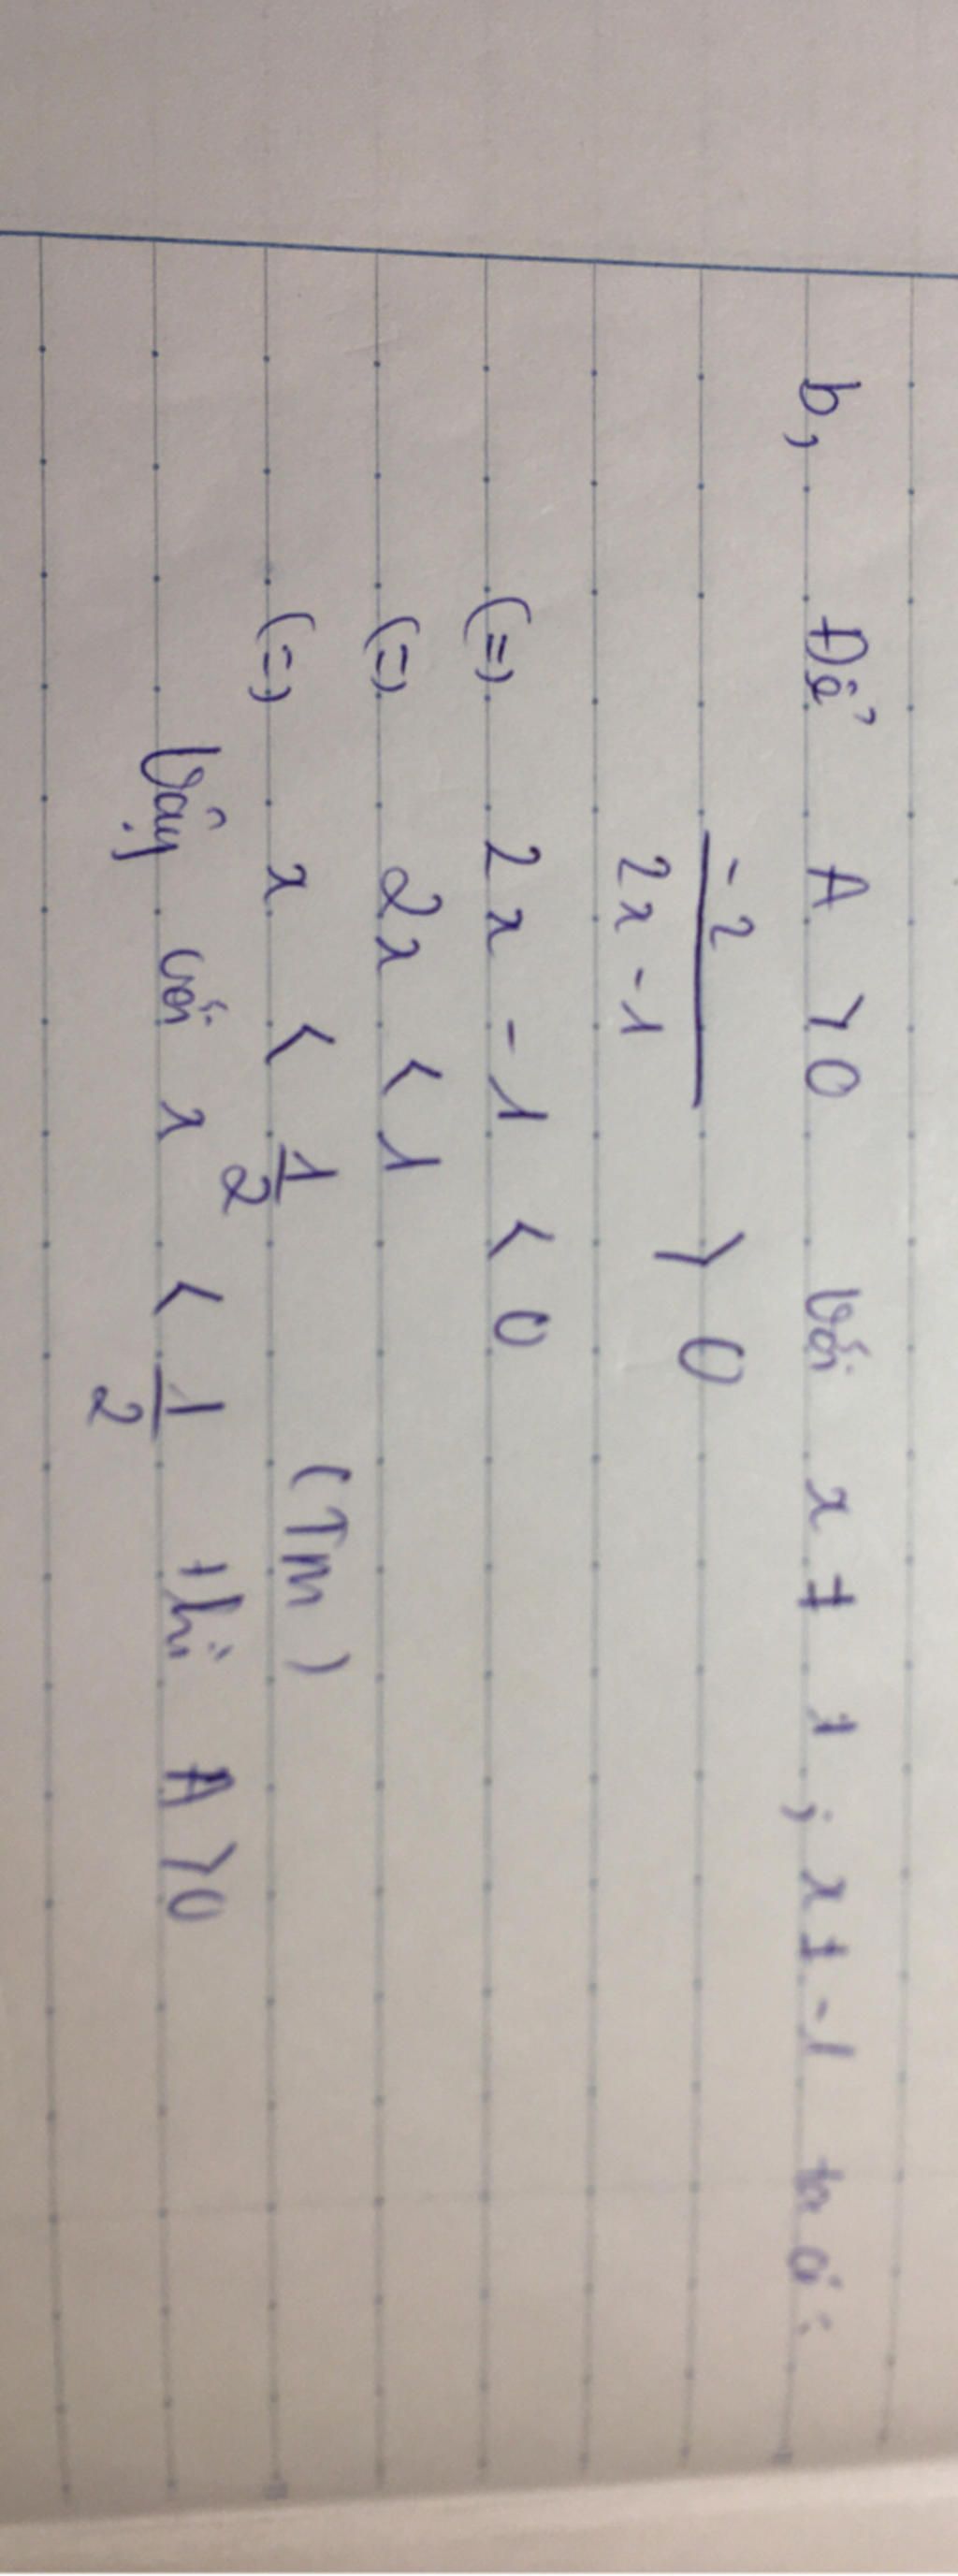 b, Để A > 0 với x ≠ 1 ; x ≠ -1 ta có :
-2
2x - 1 > 0
(=) 2x - 1 < 0
(=) 2x < 1
(=) x < 1/2 (Tm)
Vậy với x < 1/2 thì A > 0